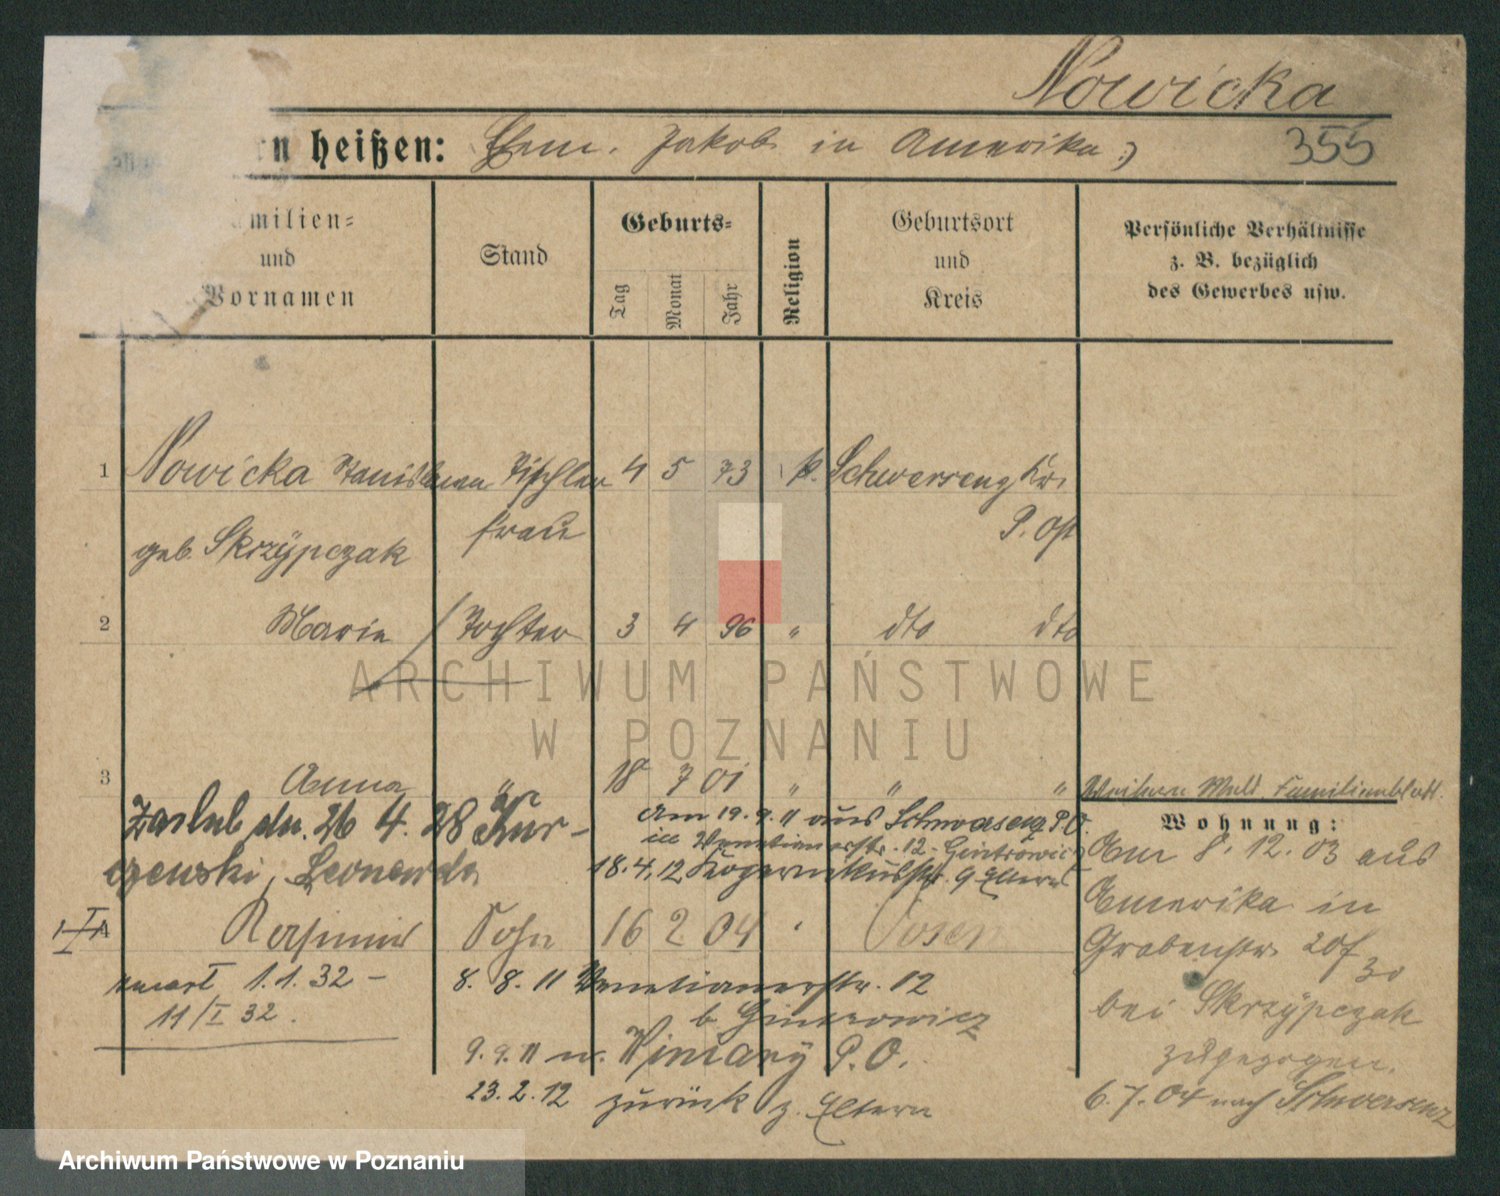 Nowicka
rn heißen: Ehem. Jakob in Amerika) 355
amilien=
und
Vornamen
Stand
Geburts=
Tag
Monat
Jahr
Religion
Geburtsort
und
Kreis
Persönliche Verhältnisse
z. B. bezüglich
des Gewerbes usw.
1 Nowicka Stanislawa Tischler 4 5 73 k. Schwersenz Kr.
geb. Skrzÿpczak frau P. Ost
2 Marie Tochter 3 4 96 " dto dto
3 Anna " 18 7 01 " " "
Weitere Familienblatt.
Wohnung:
zaślub dn. 26 4. 28 Kur-
czewski, Leonarda
Am 19. 9. 11 aus Schwersenz P.O.
in Venetianerstr. 12 - Gintrowicz
18. 4. 12 Kopernikusstr. 9 Eltern
4 Kasimir Sohn 16 2 04 " Posen
zmarł 1.1.32 -
11/I 32.
8. 8. 11 Venetianerstr. 12
b. Gintrowicz
9. 9. 11 n. Winiary P.O.
23. 2. 12 zurück z. Eltern
Am 8. 12. 03 aus
Amerika in
Grabenstr. 20
bei Skrzÿpczak
zugezogen.
6. 7. 04 nach Schwersenz
ARCHIWUM PAŃSTWOWE
W POZNANIU
Archiwum Państwowe w Poznaniu